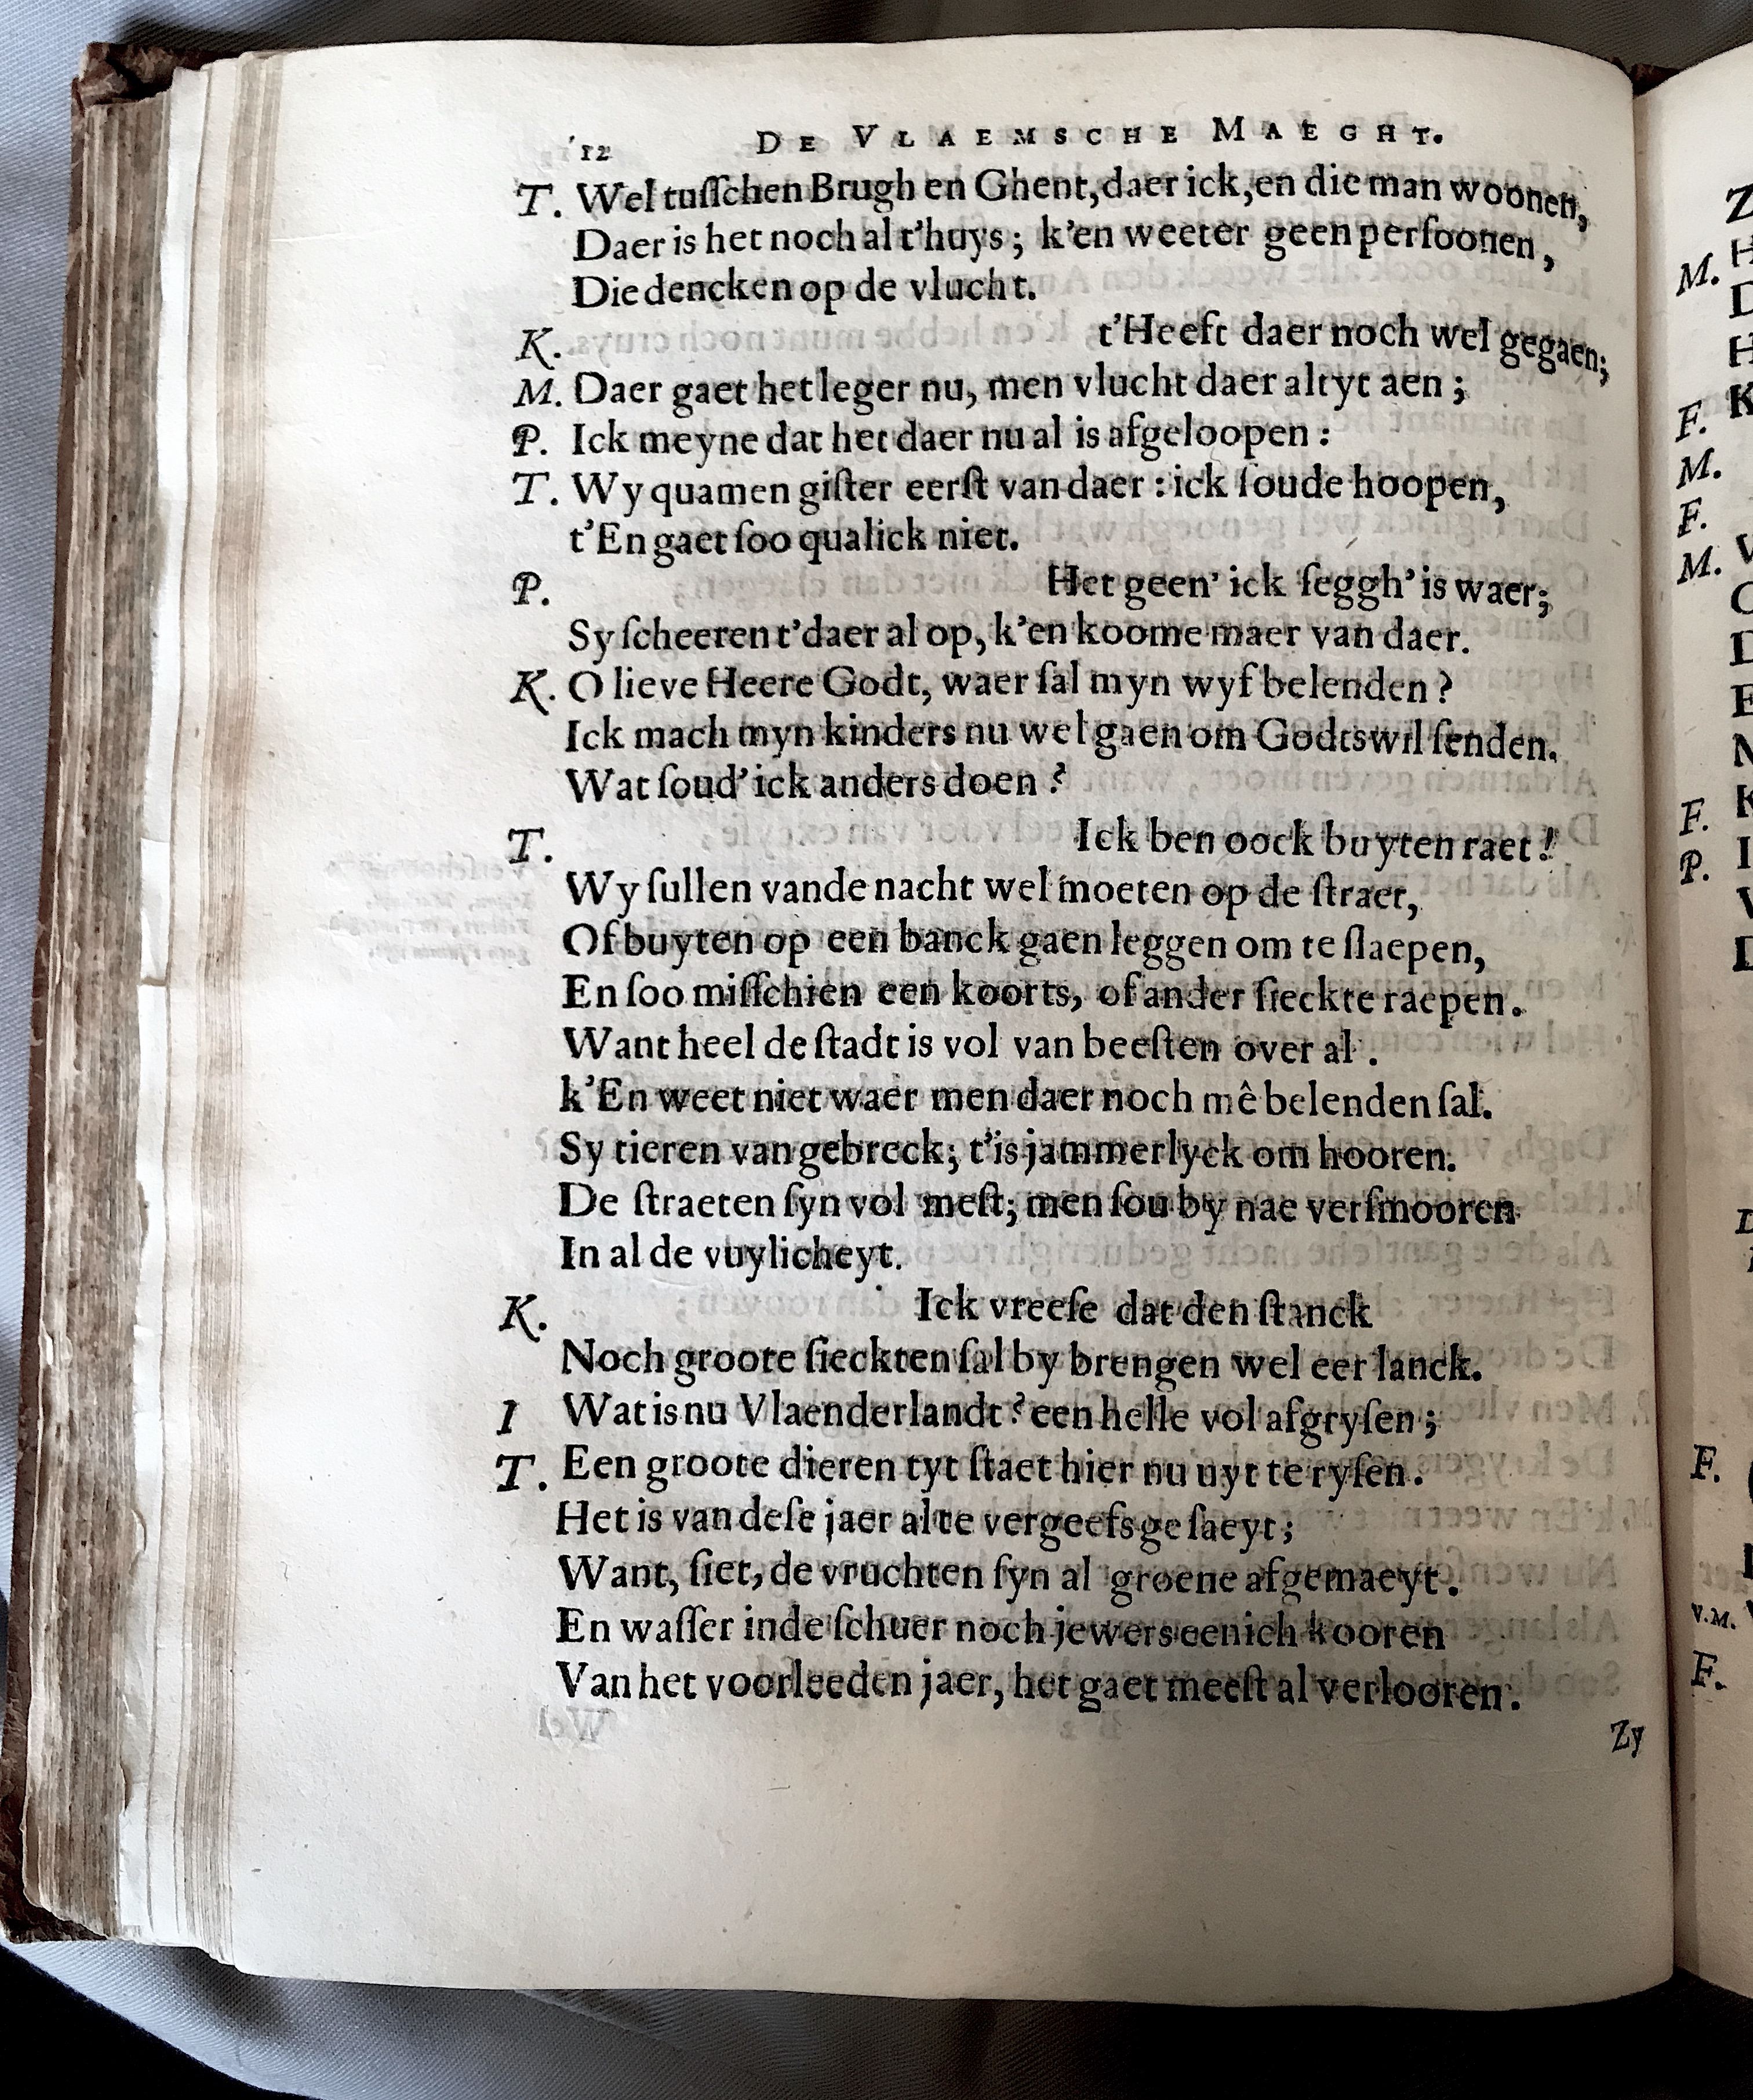 12 DE VLAEMSCHE MAEGHT.
T. Wel tuſſchen Brugh en Ghent, daer ick, en die man woonen,
Daer is het noch al t'huys; k'en weeter geen perſoonen,
Die dencken op de vlucht.
K. t'Heeft daer noch wel gegaen;
M. Daer gaet het leger nu, men vlucht daer altyt aen;
P. Ick meyne dat het daer nu al is afgeloopen:
T. Wy quamen giſter eerſt van daer: ick ſoude hoopen,
t'En gaet ſoo qualick niet.
P. Het geen' ick ſeggh' is waer;
Sy ſcheeren t'daer al op, k'en koome maer van daer.
K. O lieve Heere Godt, waer ſal myn wyf belenden?
Ick mach myn kinders nu wel gaen om Godtswil ſenden.
Wat ſoud' ick anders doen?
T. Ick ben oock buyten raet!
Wy ſullen vande nacht wel moeten op de ſtraet,
Of buyten op een banck gaen leggen om te ſlaepen,
En ſoo miſſchien een koorts, of ander ſieckte raepen.
Want heel de ſtadt is vol van beeſten over al.
k'En weet niet waer men daer noch mê belenden ſal.
Sy tieren van gebreck; t'is jammerlyck om hooren.
De ſtraeten ſyn vol meſt; men ſou by nae verſmooren
In al de vuylicheyt.
K. Ick vreeſe dat den ſtanck
Noch groote ſieckten ſal by brengen wel eer lanck.
I Wat is nu Vlaenderlandt? een helle vol afgryſen;
T. Een groote dieren tyt ſtaet hier nu uyt te ryſen.
Het is van deſe jaer al te vergeefs geſaeyt;
Want, ſiet, de vruchten ſyn al groene afgemaeyt.
En waſſer inde ſchuer noch jewers eenich kooren
Van het voorleeden jaer, het gaet meeſt al verlooren.
Zy